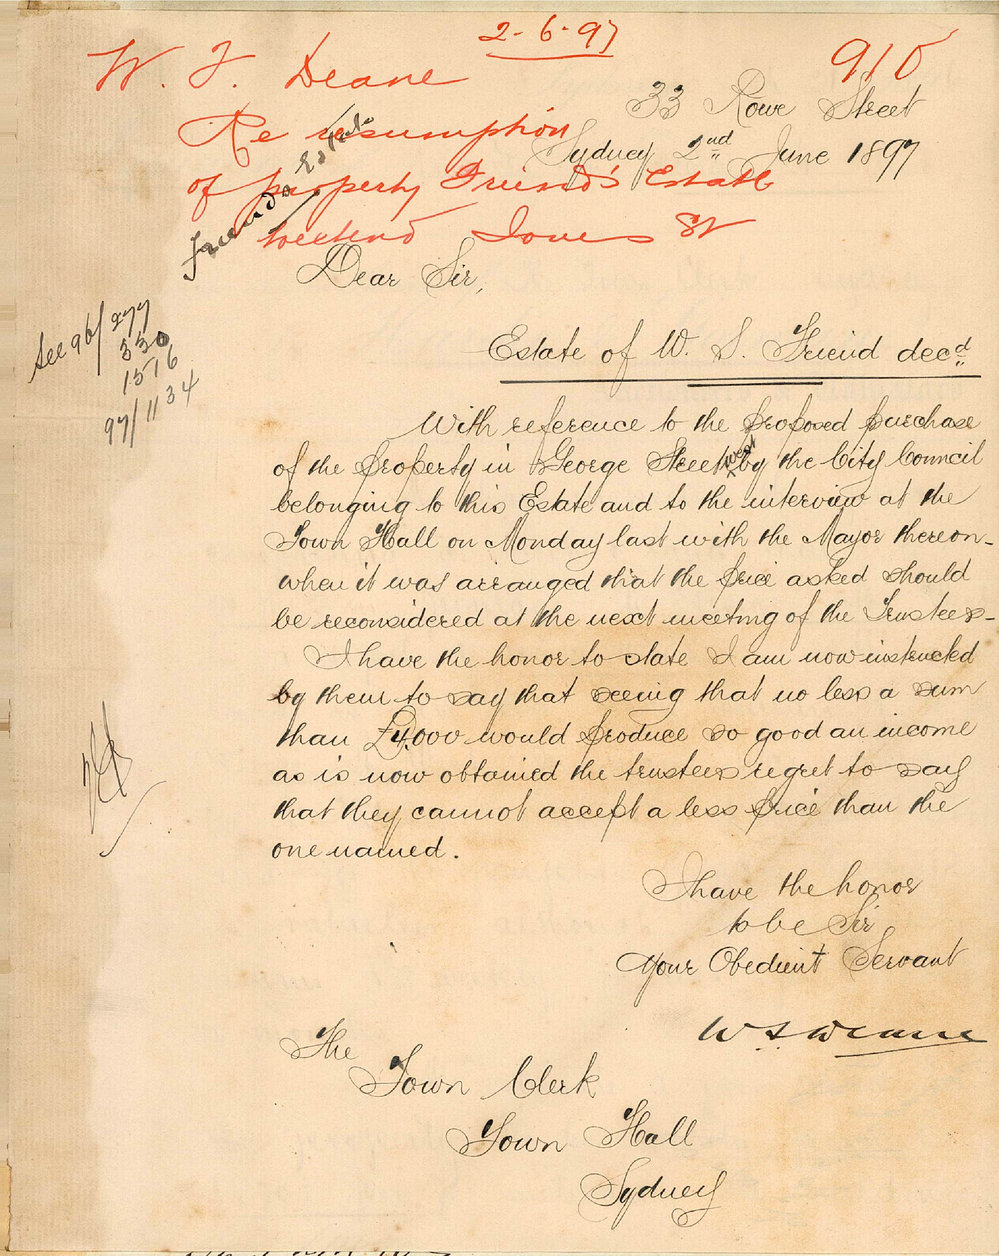 2-6-97
910
W. F. Deane
Re resumption
of property Friend's Estate
Jones St
Friends Estate
33 Rowe Street
Sydney 2nd June 1897
Dear Sir,
See 96/277
330
1576
97/1134
Estate of W. S. Friend decd
With reference to the proposed purchase
of the property in George Street West by the City Council
belonging to this Estate and to the interview at the
Town Hall on Monday last with the Mayor thereon_
when it was arranged that the price asked should
be reconsidered at the next meeting of the Trustees_
I have the honor to state I am now instructed
by them to say that seeing that no less a sum
than £4,000 would produce so good an income
as is now obtained the trustees regret to say
that they cannot accept a less price than the
one named.
I have the honor
to be Sir
Your Obedient Servant
W S Deane
The
Town Clerk
Town Hall
Sydney